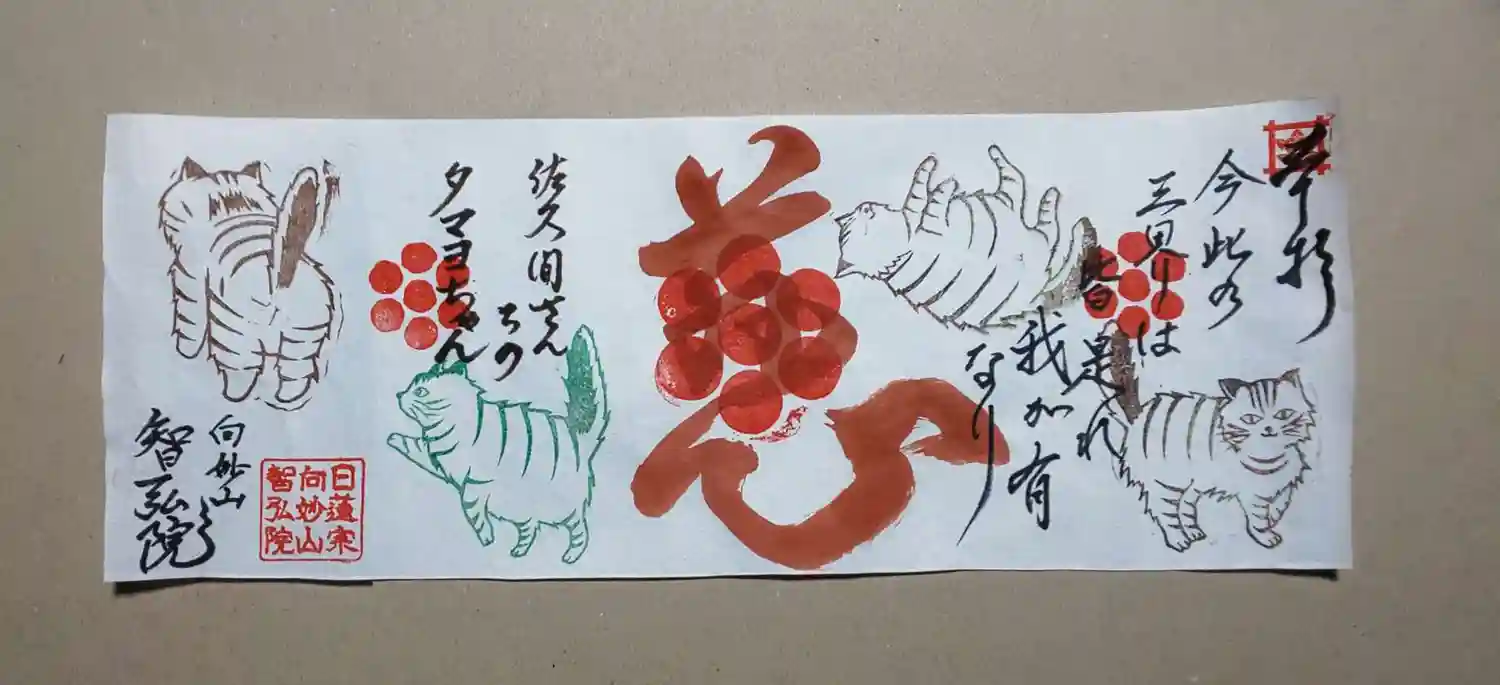 奉拝
今此の
三界は
皆是れ
我が有
なり
慈
佐久間さん
ちの
タマヨちゃん
向妙山
智弘院
日蓮宗
向妙山
智弘院